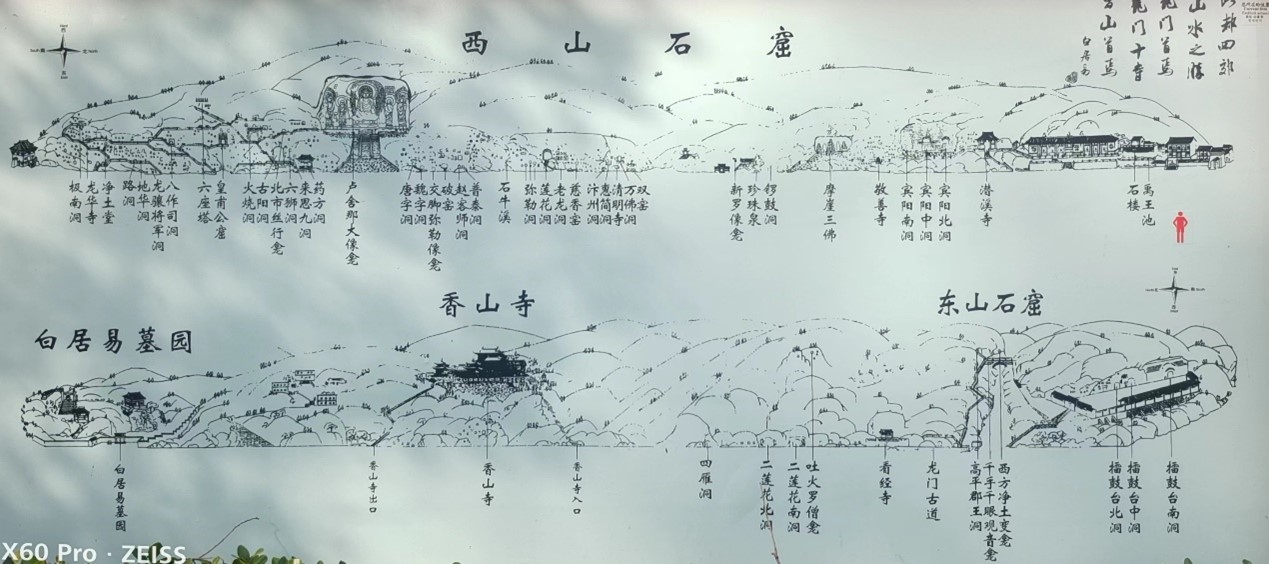 西山石窟
极南洞
龙华寺
净土堂
路洞
地华洞
龙骧将军洞
八作司洞
六座塔
皇甫公窟
火烧洞
古阳洞
北市丝行龛
六狮洞
来思九洞
药方洞
卢舍那大像龛
唐字洞
魏字洞
交脚弥勒像龛
破窑
赵客师洞
普泰洞
石牛溪
弥勒洞
莲花洞
老龙洞
慈香窑
汴州洞
惠简洞
清明寺
万佛洞
双窑
新罗像龛
珍珠泉
锷鼓洞
摩崖三佛
敬善寺
宾阳南洞
宾阳中洞
宾阳北洞
潜溪寺
石楼
禹王池
四郊
山水之胜
龙门首焉
龙门十寺
香山首焉
白居易
白居易墓园
香山寺
东山石窟
白居易墓园
香山寺出口
香山寺
香山寺入口
四雁洞
二莲花北洞
二莲花南洞
吐火罗僧龛
看经寺
龙门古道
高平郡王洞
千手千眼观音龛
西方净土变龛
擂鼓台北洞
擂鼓台中洞
擂鼓台南洞
X60 Pro · ZEISS